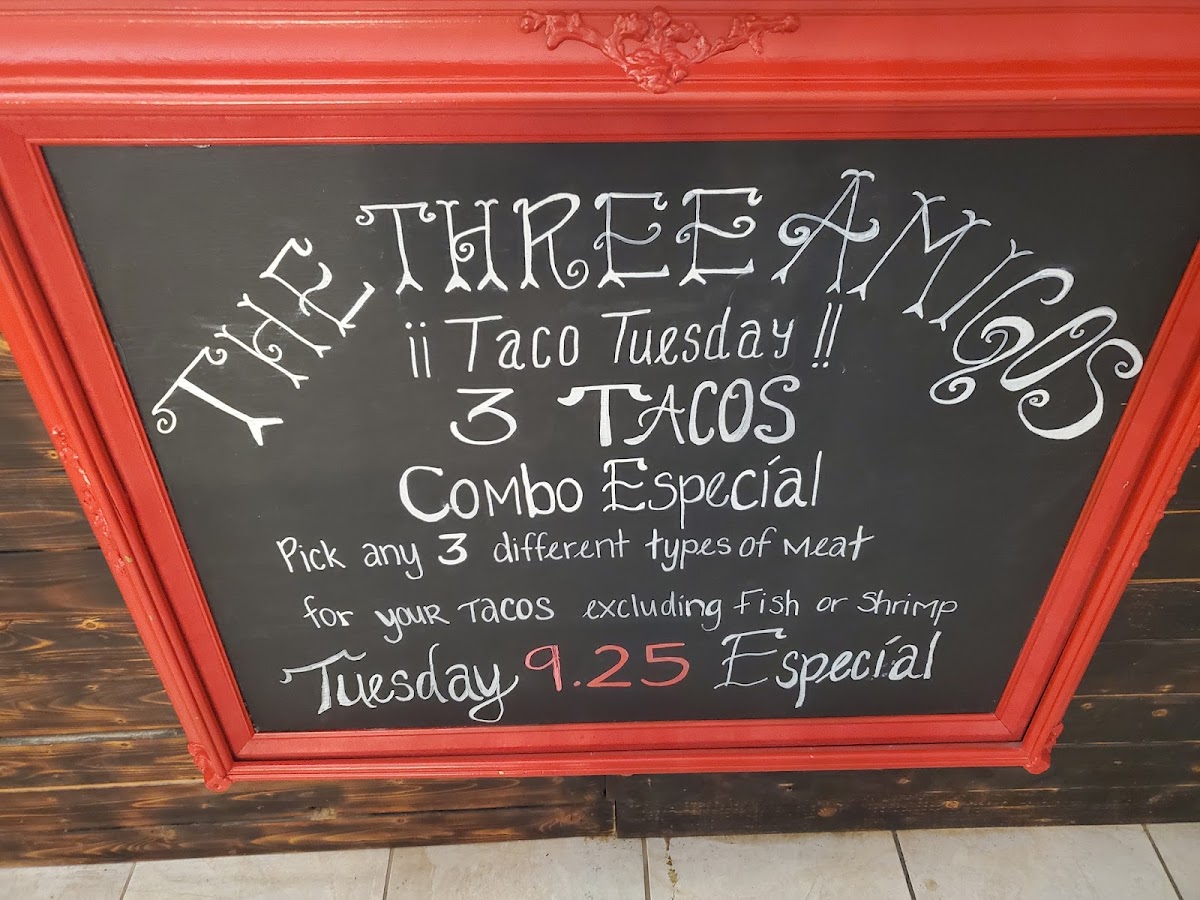 THE THREE AMIGOS
¡¡ Taco Tuesday !!
3 TACOS
Combo Especíal
Pick any 3 different types of Meat
for your TACOS excluding Fish or Shrimp
Tuesday 9.25 Especíal